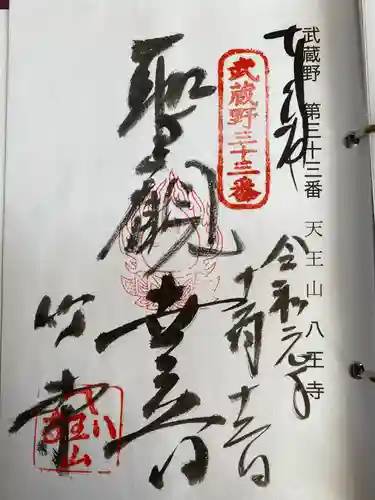 武蔵野 第三十三番 天王山 八王寺
奉拝
令和元年
十一月十六日
武蔵野三十三番
聖観世音
竹寺